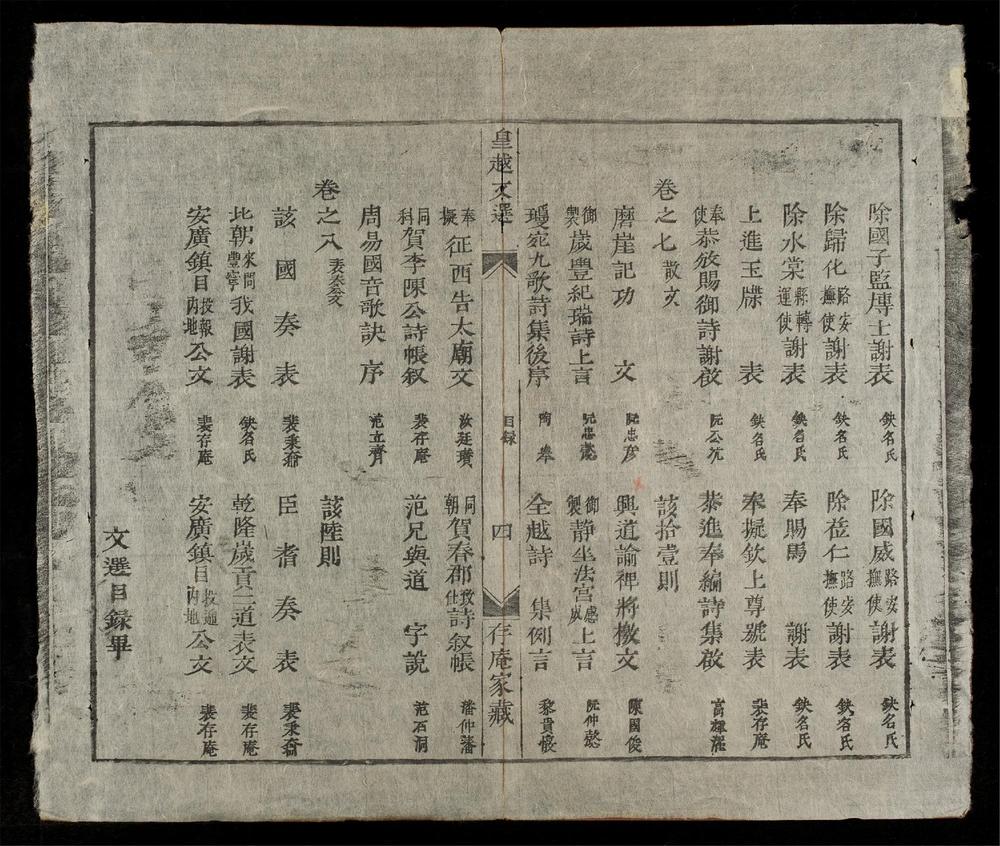 除國子監博士謝表 缺名氏 除國威路安撫使謝表 缺名氏
除歸化路安撫使謝表 缺名氏 除莅仁路安撫使謝表 缺名氏
除水棠縣轉運使謝表 缺名氏 奉賜馬謝表 缺名氏
上進玉牒表 缺名氏 奉擬欽上尊號表 裴存庵
奉使恭放賜御詩謝啟 阮公沆 恭進奉編詩集啟 高輝濯
卷之七 散文 該拾壹則
磨崖記功文 阮忠彥 興道諭裨將檄文 陳國俊
御製歲豐紀瑞詩上言 阮忠懿 御製静坐法宮感成上言 阮仲懿
瓊宛九歌詩集後序 陶奉 全越詩集例言 黎貴惇
皇越文選 目録 四 存庵家藏
奉擬征西告太廟文 汝廷瓚 同朝賀春郡致仕詩叙帳 潘仲藩
同科賀李陳公詩帳叙 裴存庵 范兄與道字說 范石洞
周易國音歌訣序 范立齊
卷之八 表奏文 該陸則
該國奏表 裴秉爺 臣耆奏表 裴秉爺
北朝來問豐寧我國謝表 缺名氏 乾隆歲貢二道表文 裴存庵
安廣鎮目投報内地公文 裴存庵 安廣鎮目投遞内地公文 裴存庵
文選目録畢